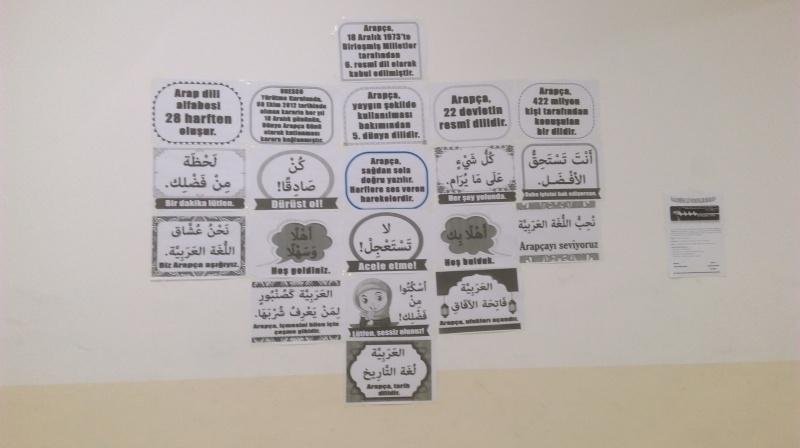 Arapça,
18 Aralık 1973'te
Birleşmiş Milletler
tarafından
6. resmî dil olarak
kabul edilmiştir.
Arap dili
alfabesi
28 harften
oluşur.
UNESCO
Yürütme Kurulunda,
Ekim 2012 tarihinde
alınan kararla her yıl
18 Aralık gününün,
Dünya Arapça Günü
olarak kutlanması
karara bağlanmıştır.
Arapça,
yaygın şekilde
kullanılması
bakımından
5. dünya dilidir.
Arapça,
22 devletin
resmî dilidir.
Arapça,
422 milyon
kişi tarafından
konuşulan
bir dildir.
لَحْظَة
مِنْ فَضْلِك.
Bir dakika lütfen.
كُنْ
صَادِقًا!
Dürüst ol!
Arapça,
sağdan sola
doğru yazılır.
Harflere ses veren
harekelerdir.
كُلُّ شَيْءٍ
عَلَى مَا يُرَام.
Her şey yolunda.
أَنْتَ تَسْتَحِقُّ
الأَفْضَل.
Daha iyisini hak ediyorsun.
نَحْنُ عُشَّاق
اللُّغَة العَرَبِيَّة.
Biz Arapça aşığıyız.
أَهْلًا
وَسَهْلًا
Hoş geldiniz.
لا
تَسْتَعْجِلْ!
Acele etme!
أَهْلًا بِك
Hoş bulduk.
نُحِبُّ اللُّغَة العَرَبِيَّة
Arapçayı seviyoruz
العَرَبِيَّة كَصُنْبُورٍ
لِمَنْ يَعْرِف شُرْبَهَا.
Arapça, içmesini bilen için
çeşme gibidir.
اُسْكُتُوا
مِنْ
فَضْلِك!
Lütfen, sessiz olunuz!
العَرَبِيَّة
فَاتِحَة الآفَاق
Arapça, ufukları açandır.
العَرَبِيَّة
لُغَة التَّارِيخ
Arapça, tarih
dilidir.